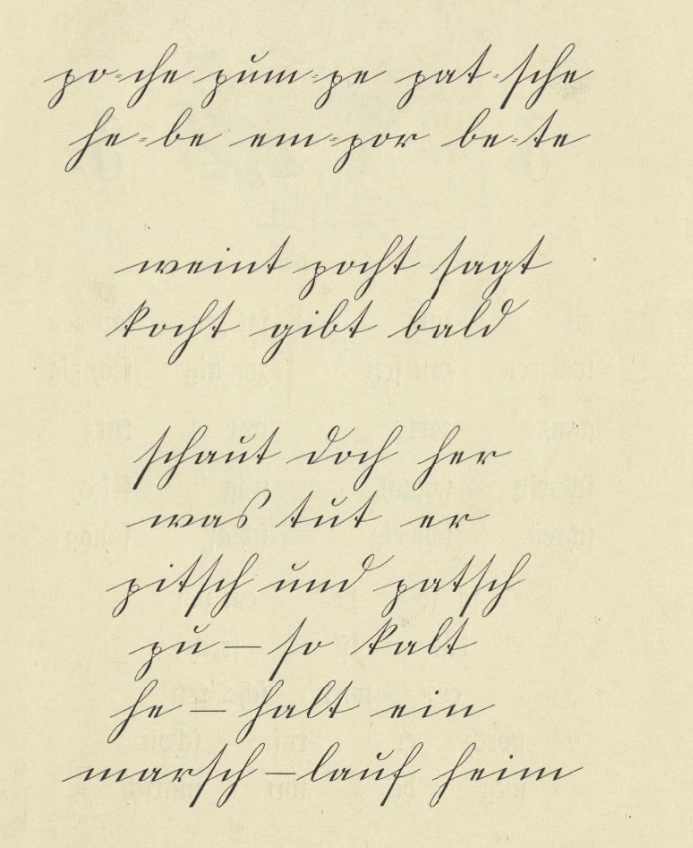 po-che pum-pe pat-sche
he-be em-por be-te
weint pocht sagt
kocht gibt bald
schaut doch her
was tut er
pitsch und patsch
zu – so kalt
he – halt ein
marsch – lauf heim